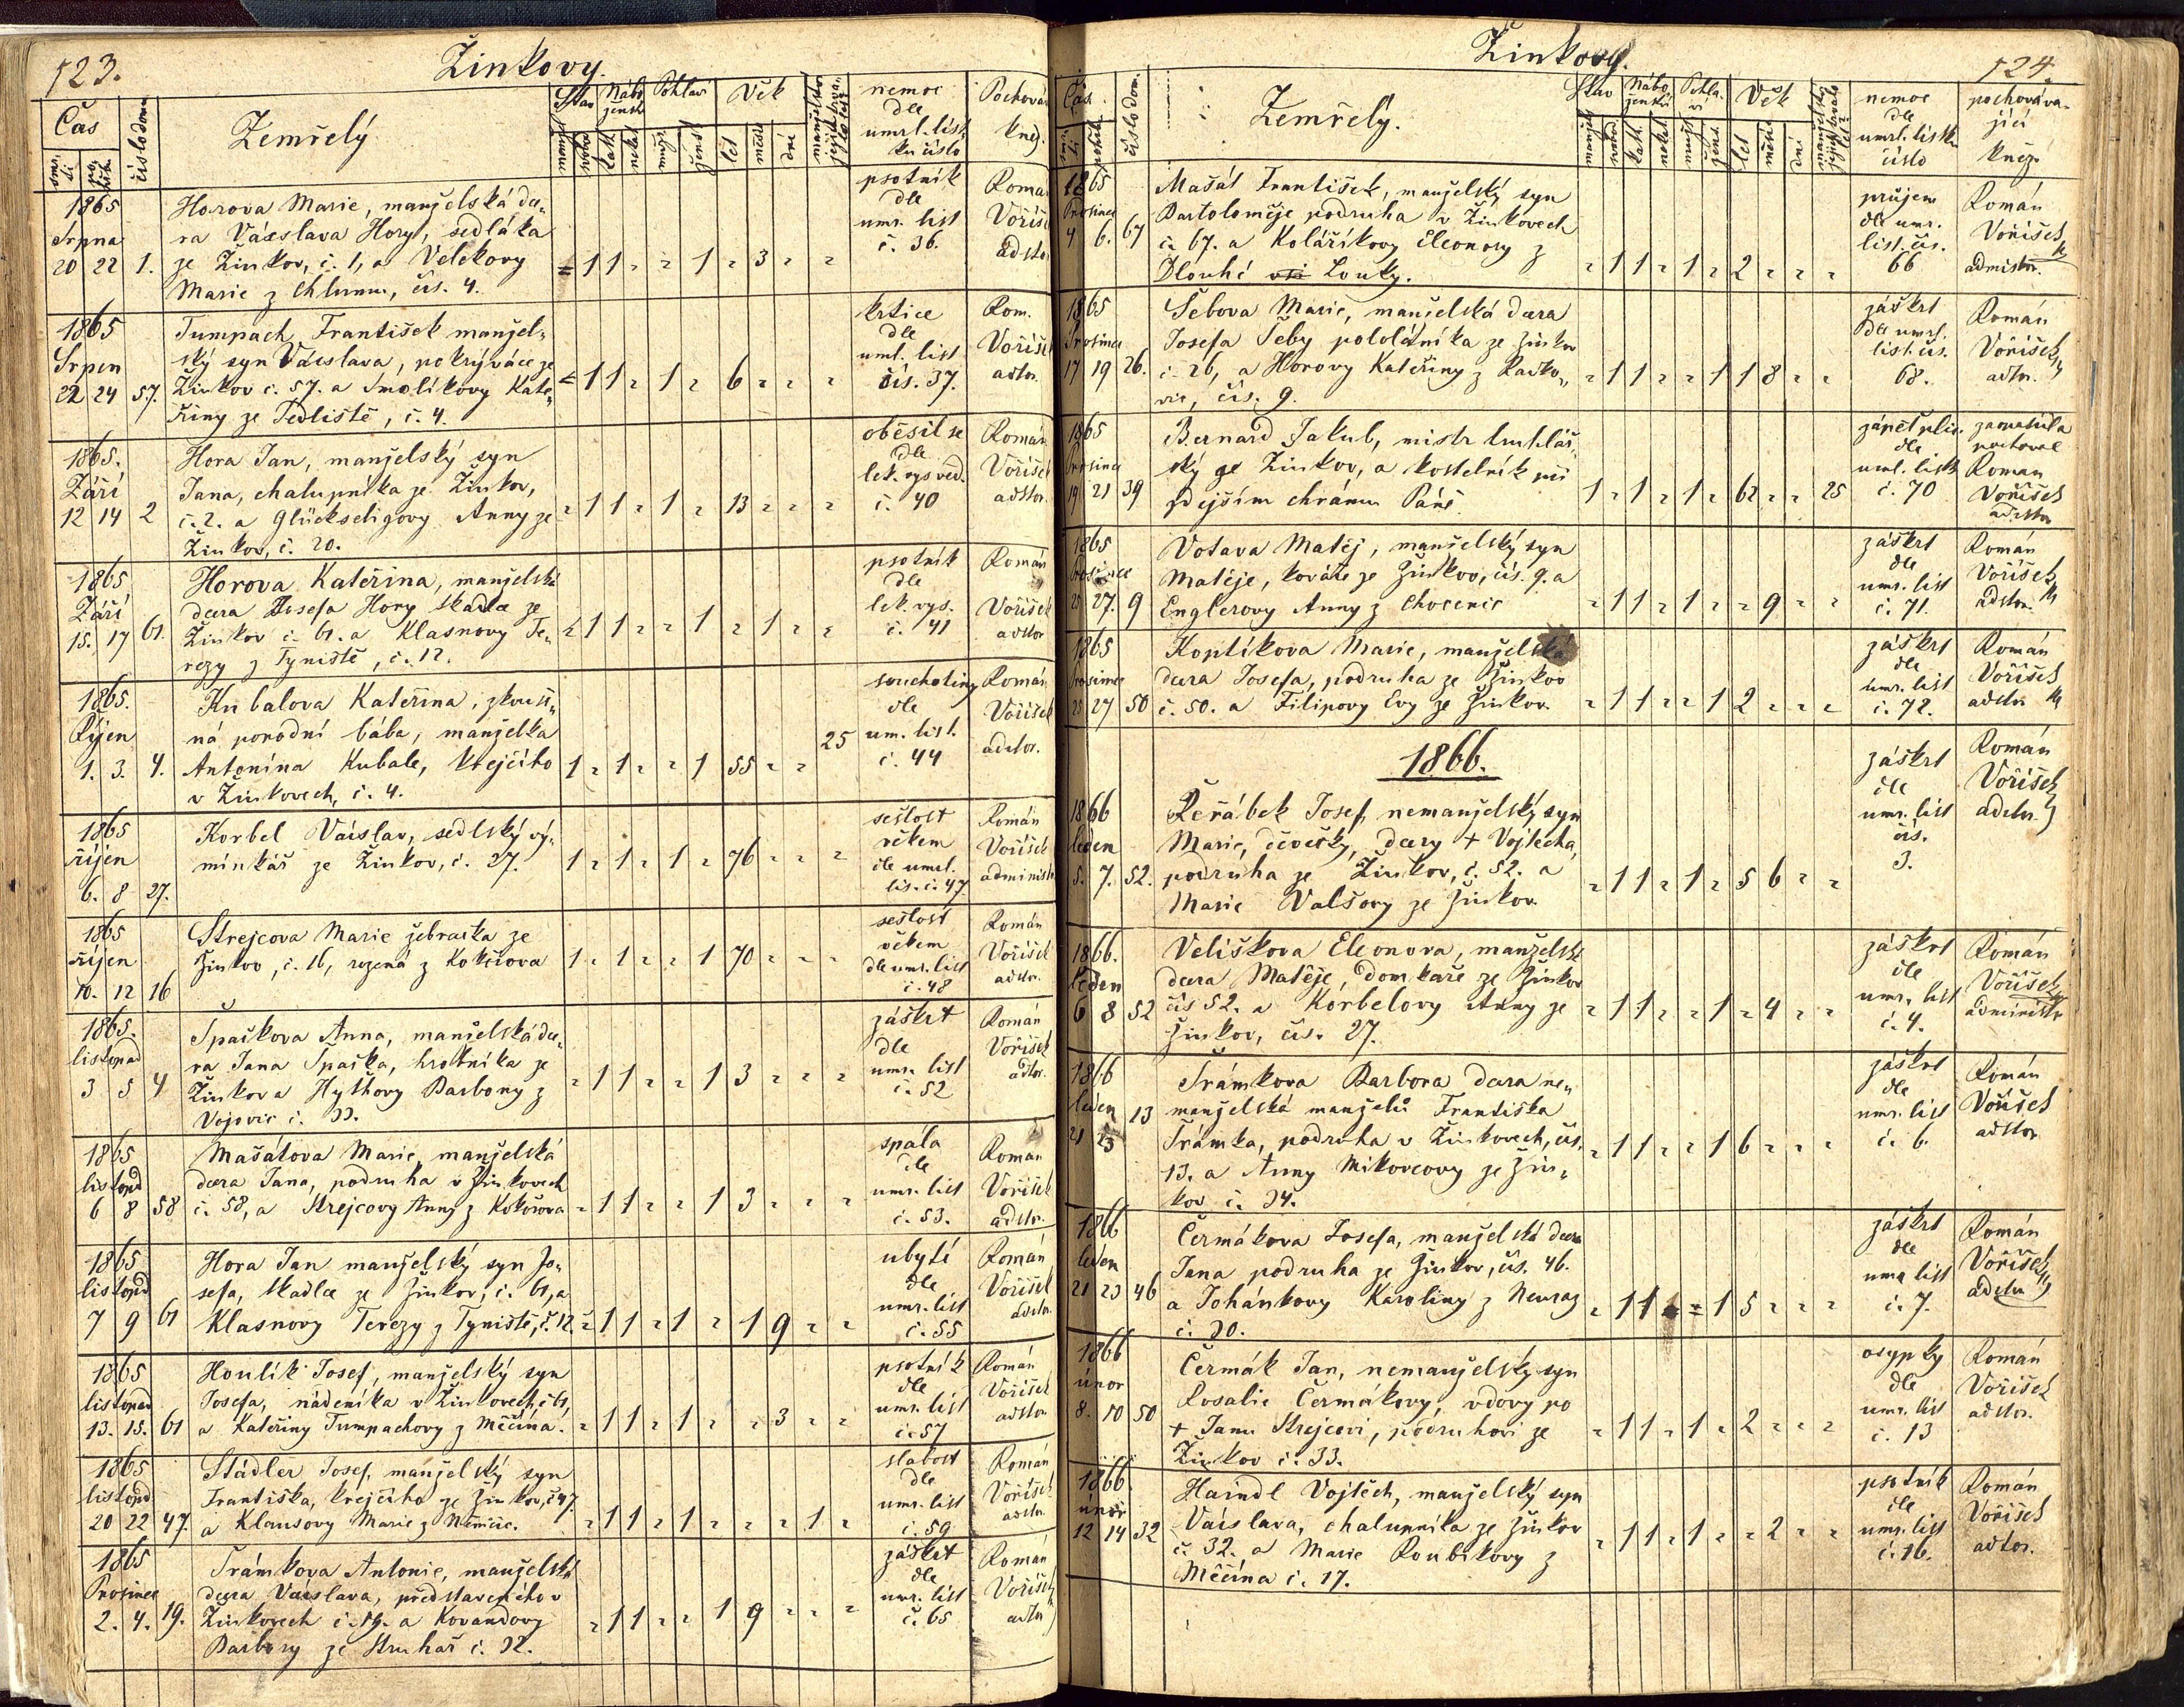 123.
Žinkovy.
Čas
číslo dom.
Zemřelý
Stav
Nábo
ženst.
Pohlaví
Věk
let
dní
nemoc
dle
umrl. list
ku číslo
Pochová
kněz.
1865
Srpna
20 22 1.
Horova Marie, manželská dce„
ra Václava Hory, sedláka
ze Žinkov, č. 1, a Velekovy
Marie z Chlumu, čís. 4.
1 1 1 3
psotník
dle
umr. list
č. 36.
Román
Voříšek
adstor
1865
Srpen
22 24 57.
Tumpach František manžel„
ský syn Václava, pokrývače ze
Žinkov č. 57. a Smolíkovy Kate„
řiny ze Sedliště, č. 4.
1 1 1 6
krtice
dle
uml. list
čís. 37.
Rom.
Voříšek
adtor.
1865.
Září
12 14 2
Hora Jan, manželský syn
Jana, chalupníka ze Žinkov,
č. 2. a Glückseligovy Anny ze
Žinkov, č. 20.
1 1 1 13
oběsil se
dle
lek. vysvěd.
č. 40
Román
Voříšek
adstor.
1865
Září
15. 17 61.
Horova Kateřina, manželská
dcera Josefa Hory tkadlce ze
Žinkov č. 61. a Klasnovy Te„
rezy z Týniště, č. 12.
1 1 1 1
psotník
dle
lek. vys.
č. 41
Román
Voříšek
adstor
1865.
Říjen
1. 3. 4.
Kubalova Kateřina, zkouš„
ná porodní bába, manželka
Antonína Kubale, krejčího
v Žinkovech, č. 4.
1 1 1 55 25
souchotiny
dle
um. list.
č. 44
Román
Voříšek
adstor.
1865
říjen
6. 8 27.
Korbel Václav, sedlský vý„
minkář ze Žinkov, č. 27.
1 1 1 76
sešlost
věkem
dle umrl.
lis. č. 47
Román
Voříšek
administr
1865
říjen
10. 12 16
Strejcova Marie žebračka ze
Žinkov, č. 16, rozená z Kokořova
1 1 1 70
sešlost
věkem
dle umr. list
č. 48
Román
Voříšek
adstor.
1865.
listopad
3 5 4
Špačkova Anna, manželská dce„
ra Jana Špačka, hrobníka ze
Žinkov a Hythovy Barbory z
Vojovic č. 33.
1 1 1 3
záškrt
dle
umr. list
č. 52
Román
Voříšek
adtor.
1865
listopd
6 8 58
Mašátova Marie, manželská
dcera Jana, podruha v Žinkovech
č. 58, a Strejcovy Anny z Kokořova
1 1 1 3
spála
dle
umr. list
č. 53.
Román
Voříšek
adstor.
1865
listopd
7 9 61
Hora Jan manželský syn Jo„
sefa, tkadlce ze Žinkov, č. 61, a
Klasnovy Terezy z Týniště, č. 12.
1 1 1 1 9
ubytí
dle
umr. list
č. 55
Román
Voříšek
adstor.
1865
listopad
13. 15. 61
Houlík Josef, manželský syn
Josefa, nádeníka v Žinkovech, č 61,
a Kateřiny Tumpachovy z Měčína.
1 1 1 3
psotník
dle
umr. list
č. 57
Román
Voříšek
adstor
1865
listopd
20 22 47.
Städler Josef, manželský syn
Františka, krejčího ze Žinkov, č 47.
a Klausovy Marie z Němčic.
1 1 1 1
slabost
dle
umr. list
č. 59
Román
Voříšek
adstor.
1865
Prosince
2. 4. 19.
Trámkova Antonie, manželská
dcera Václava, představeného v
Žinkovech č. 19. a Kovandovy
Barbory ze Struhař č. 32.
1 1 1 9
záškrt
dle
umr. list
č. 65
Román
Voříšek
adstor
Žinkovy.
124.
Čas
číslo dom.
Zemřelý.
Stav
Nábo
ženství
Pohla
ví
Věk
let
dní
nemoc
dle
umrl. listku
číslo
pochováva„
jící
kněz
1865
Prosince
4 6. 67
Mašát František, manželský syn
Bartoloměje podruha v Žinkovech
č. 67. a Kolaříkovy Eleonory z
Dlouhé vsi Louky.
1 1 1 2
průjem
dle umr.
list. čís.
66
Román
Voříšek
admistor.
1865
Prosince
17 19 26.
Šebova Marie, manželská dcera
Josefa Šeby pololáníka ze Žinkov
č. 26, a Horovy Kateřiny z Radko„
vic, čís. 9.
1 1 1 1 8
záškrt
dle umrl.
list. čís.
68.
Román
Voříšek
adtor.
1865
Prosince
19 21 39
Bernard Jakub, mistr truhlář„
ský ze Žinkov, a kostelník při
zdejším chrámu Páně.
1 1 1 62 25
zánět plic
dle
uml. listk
č. 70
zaopatřil a
pochoval
Roman
Voříšek
adstor
1865
Prosince
25 27. 9
Votava Matěj, manželský syn
Matěje, kováře ze Žinkov, čís. 9. a
Englerovy Anny z Chocenic
1 1 1 9
záškrt
dle
umr. list
č. 71.
Román
Voříšek
adstor.
1865
Prosince
25 27 50
Koplíkova Marie, manželská
dcera Josefa, podruha ze Žinkov
č. 50. a Filipovy Evy ze Žinkov.
1 1 1 2
záškrt
dle
umr. list
č. 72.
Román
Voříšek
adstor
1866.
1866
leden
5. 7. 52.
Řeřábek Josef, nemanželský syn
Marie, děvečky, dcery + Vojtěcha,
podruha ze Žinkov, č. 52. a
Marie Valšovy ze Žinkov.
1 1 1 5 6
záškrt
dle
umr. list
čís.
3.
Román
Voříšek
adstor
1866.
leden
6 8 52
Velíškova Eleonora, manželská
dcera Matěje, domkaře ze Žinkov
čís 52. a Korbelovy Anny ze
Žinkov, čís. 27.
1 1 1 4
záškrt
dle
umr. list
č. 4.
Román
Voříšek
administr
1866
leden
21 23 13
Trámkova Barbora dcera ne„
manželská manželů Františka
Trámka, podruha v Žinkovech, čís.
13. a Anny Mikovcovy ze Žin„
kov č. 34.
1 1 1 6
záškrt
dle
umr. list
č. 6.
Román
Voříšek
adstor.
1866
leden
21 23 46
Čermákova Josefa, manželská dcera
Jana podruha ze Žinkov, čís. 46.
a Johánkovy Karoliny z Neuraz
č. 30.
1 1 1 5
záškrt
dle
umr list
č. 7.
Román
Voříšek
adstor
1866
únor
8. 10 50
Čermák Jan, nemanželský syn
Rosalie Čermákovy, vdovy po
+ Janu Strejcovi, podruhovi ze
Žinkov č. 33.
1 1 1 2
osypky
dle
umr. list
č. 13
Román
Voříšek
adstor.
1866
únor
12 14 32
Haindl Vojtěch, manželský syn
Václava, chalupníka ze Žinkov
č. 32. a Marie Roubíkovy z
Měčína č. 17.
1 1 1 2
psotník
dle
umr. list
č. 16.
Román
Voříšek
adtor.